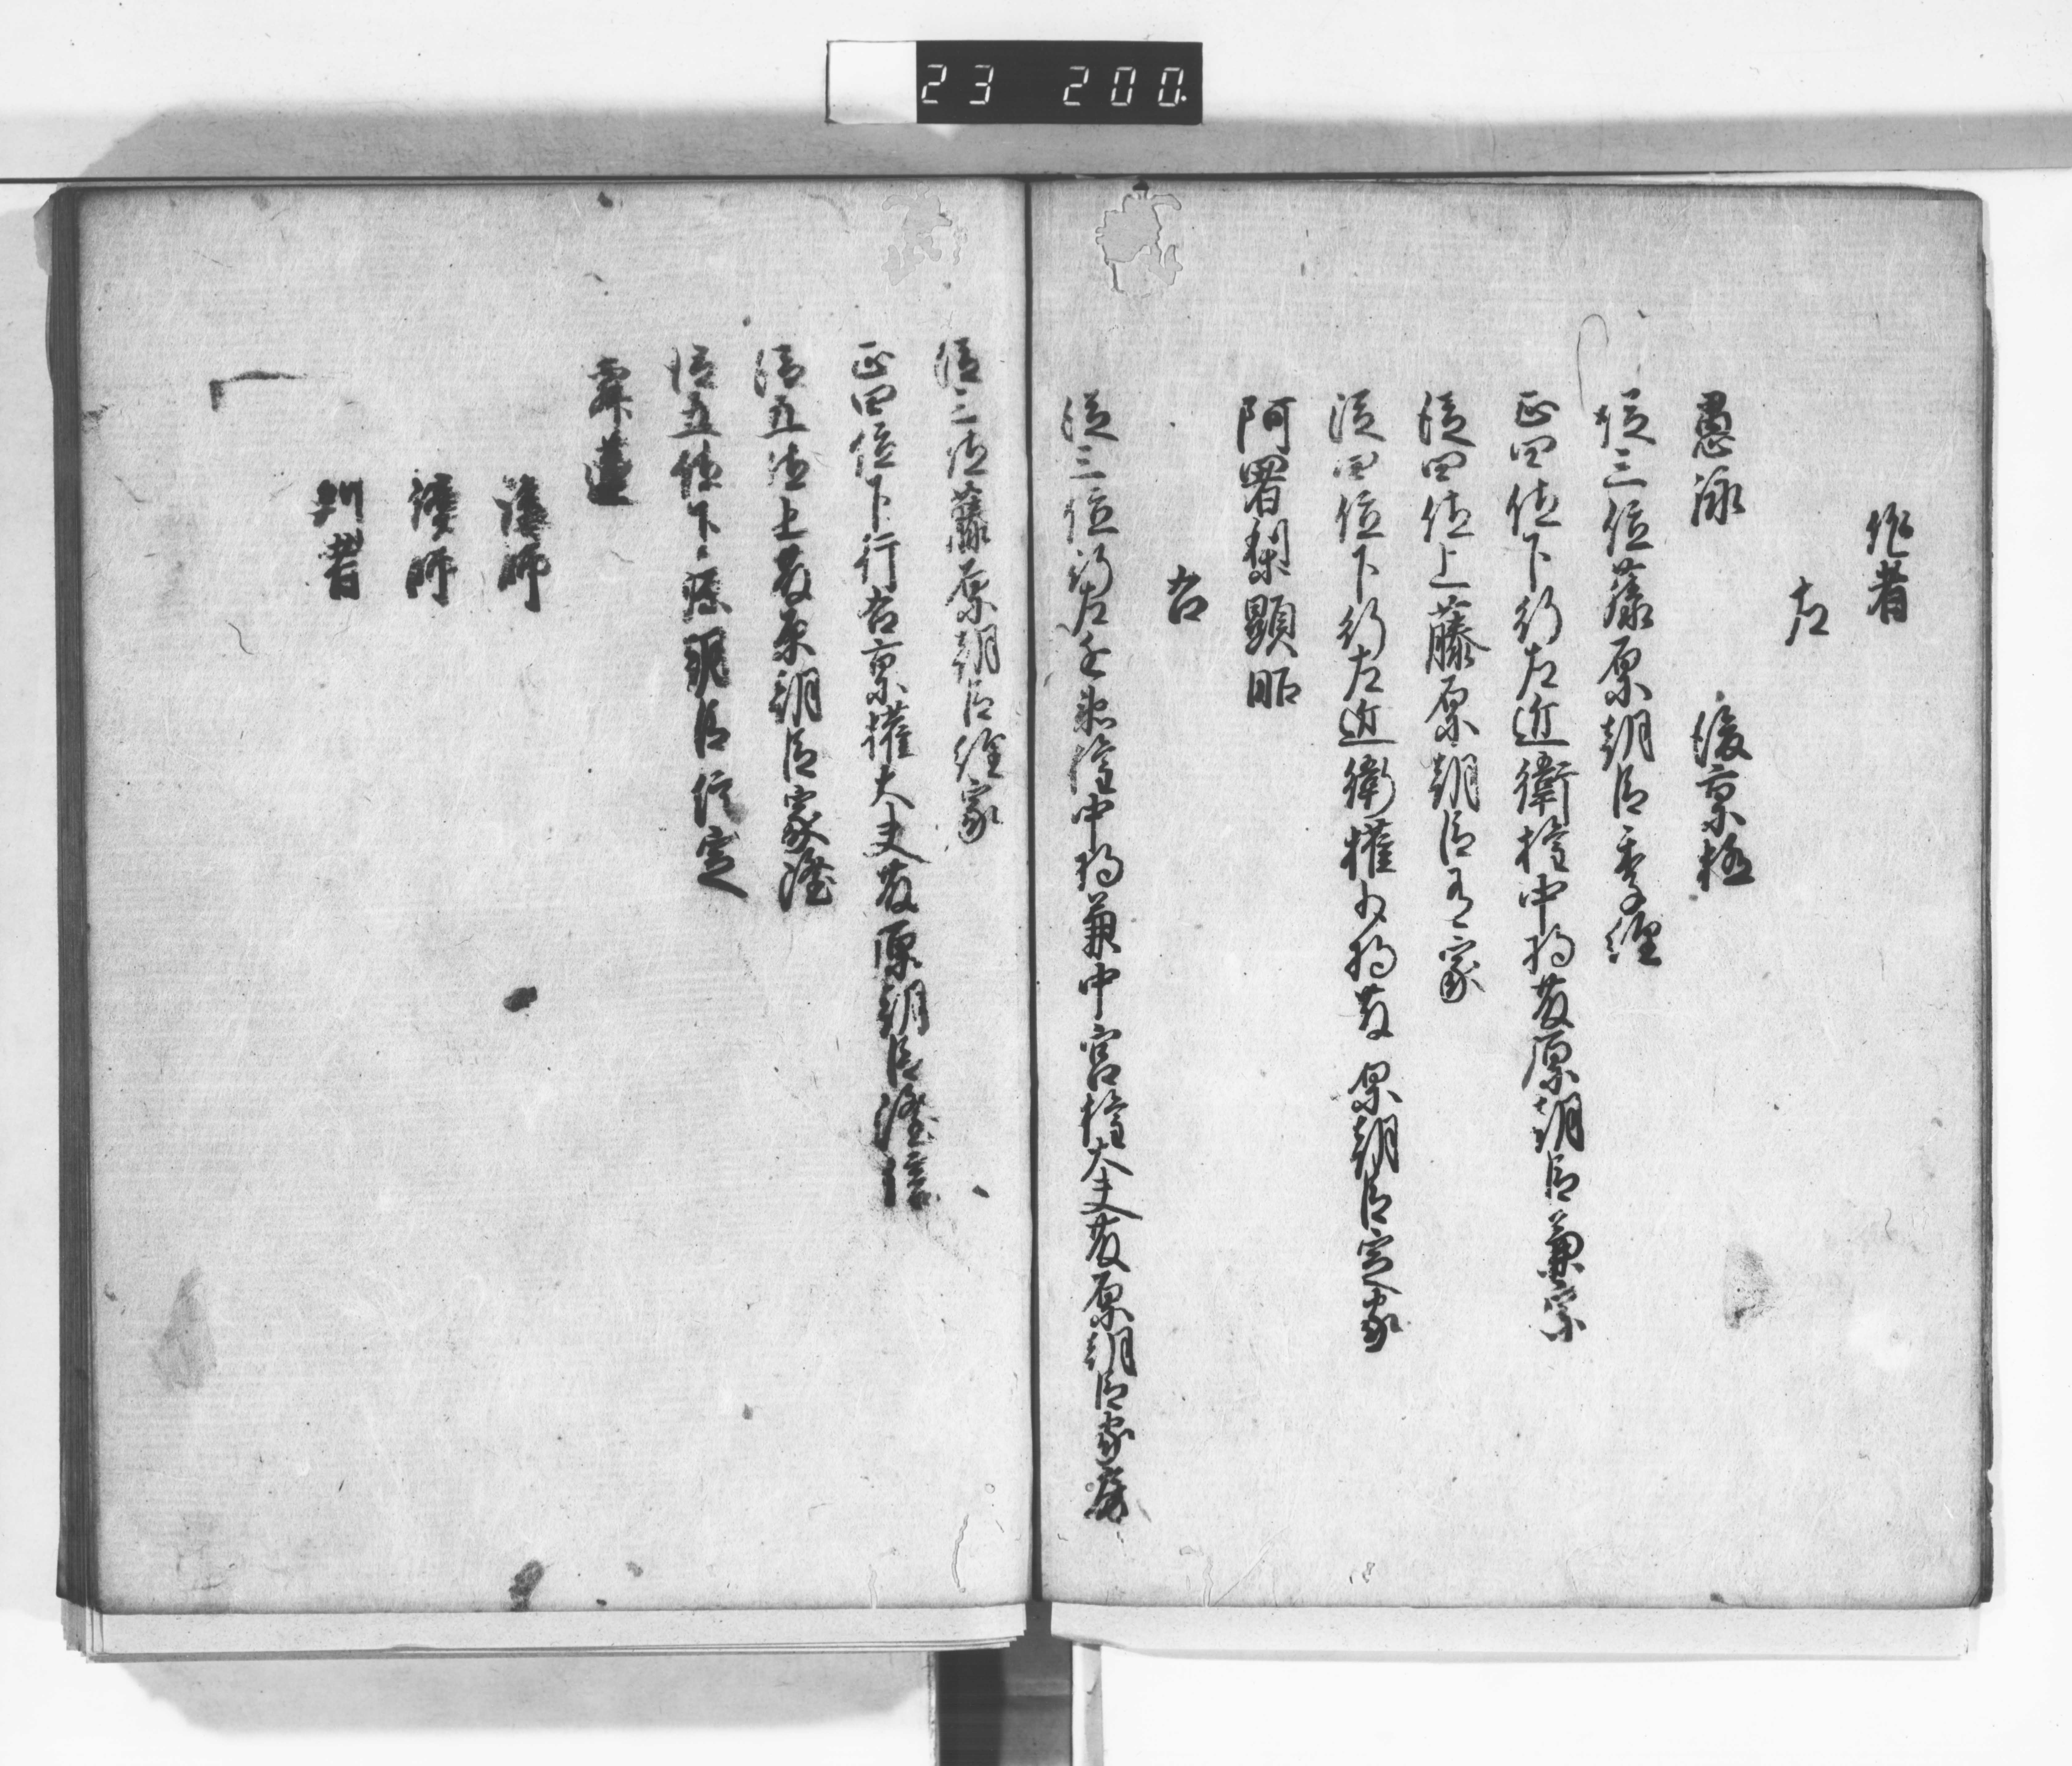 23 200
作者
左
愚詠 後京極
従三位藤原朝臣季経
正四位下行左近衛権中将藤原朝臣兼宗
従四位上藤原朝臣有家
従四位下行左近衛権少将藤原朝臣定家
阿闍梨顕昭
右
従三位行右兵衛権中将兼中宮権大夫藤原朝臣家房
従三位藤原朝臣経家
正四位下行右京権大夫藤原朝臣隆信
従五位上藤原朝臣家隆
従五位下源朝臣信定
寂蓮
講師
読師
判者